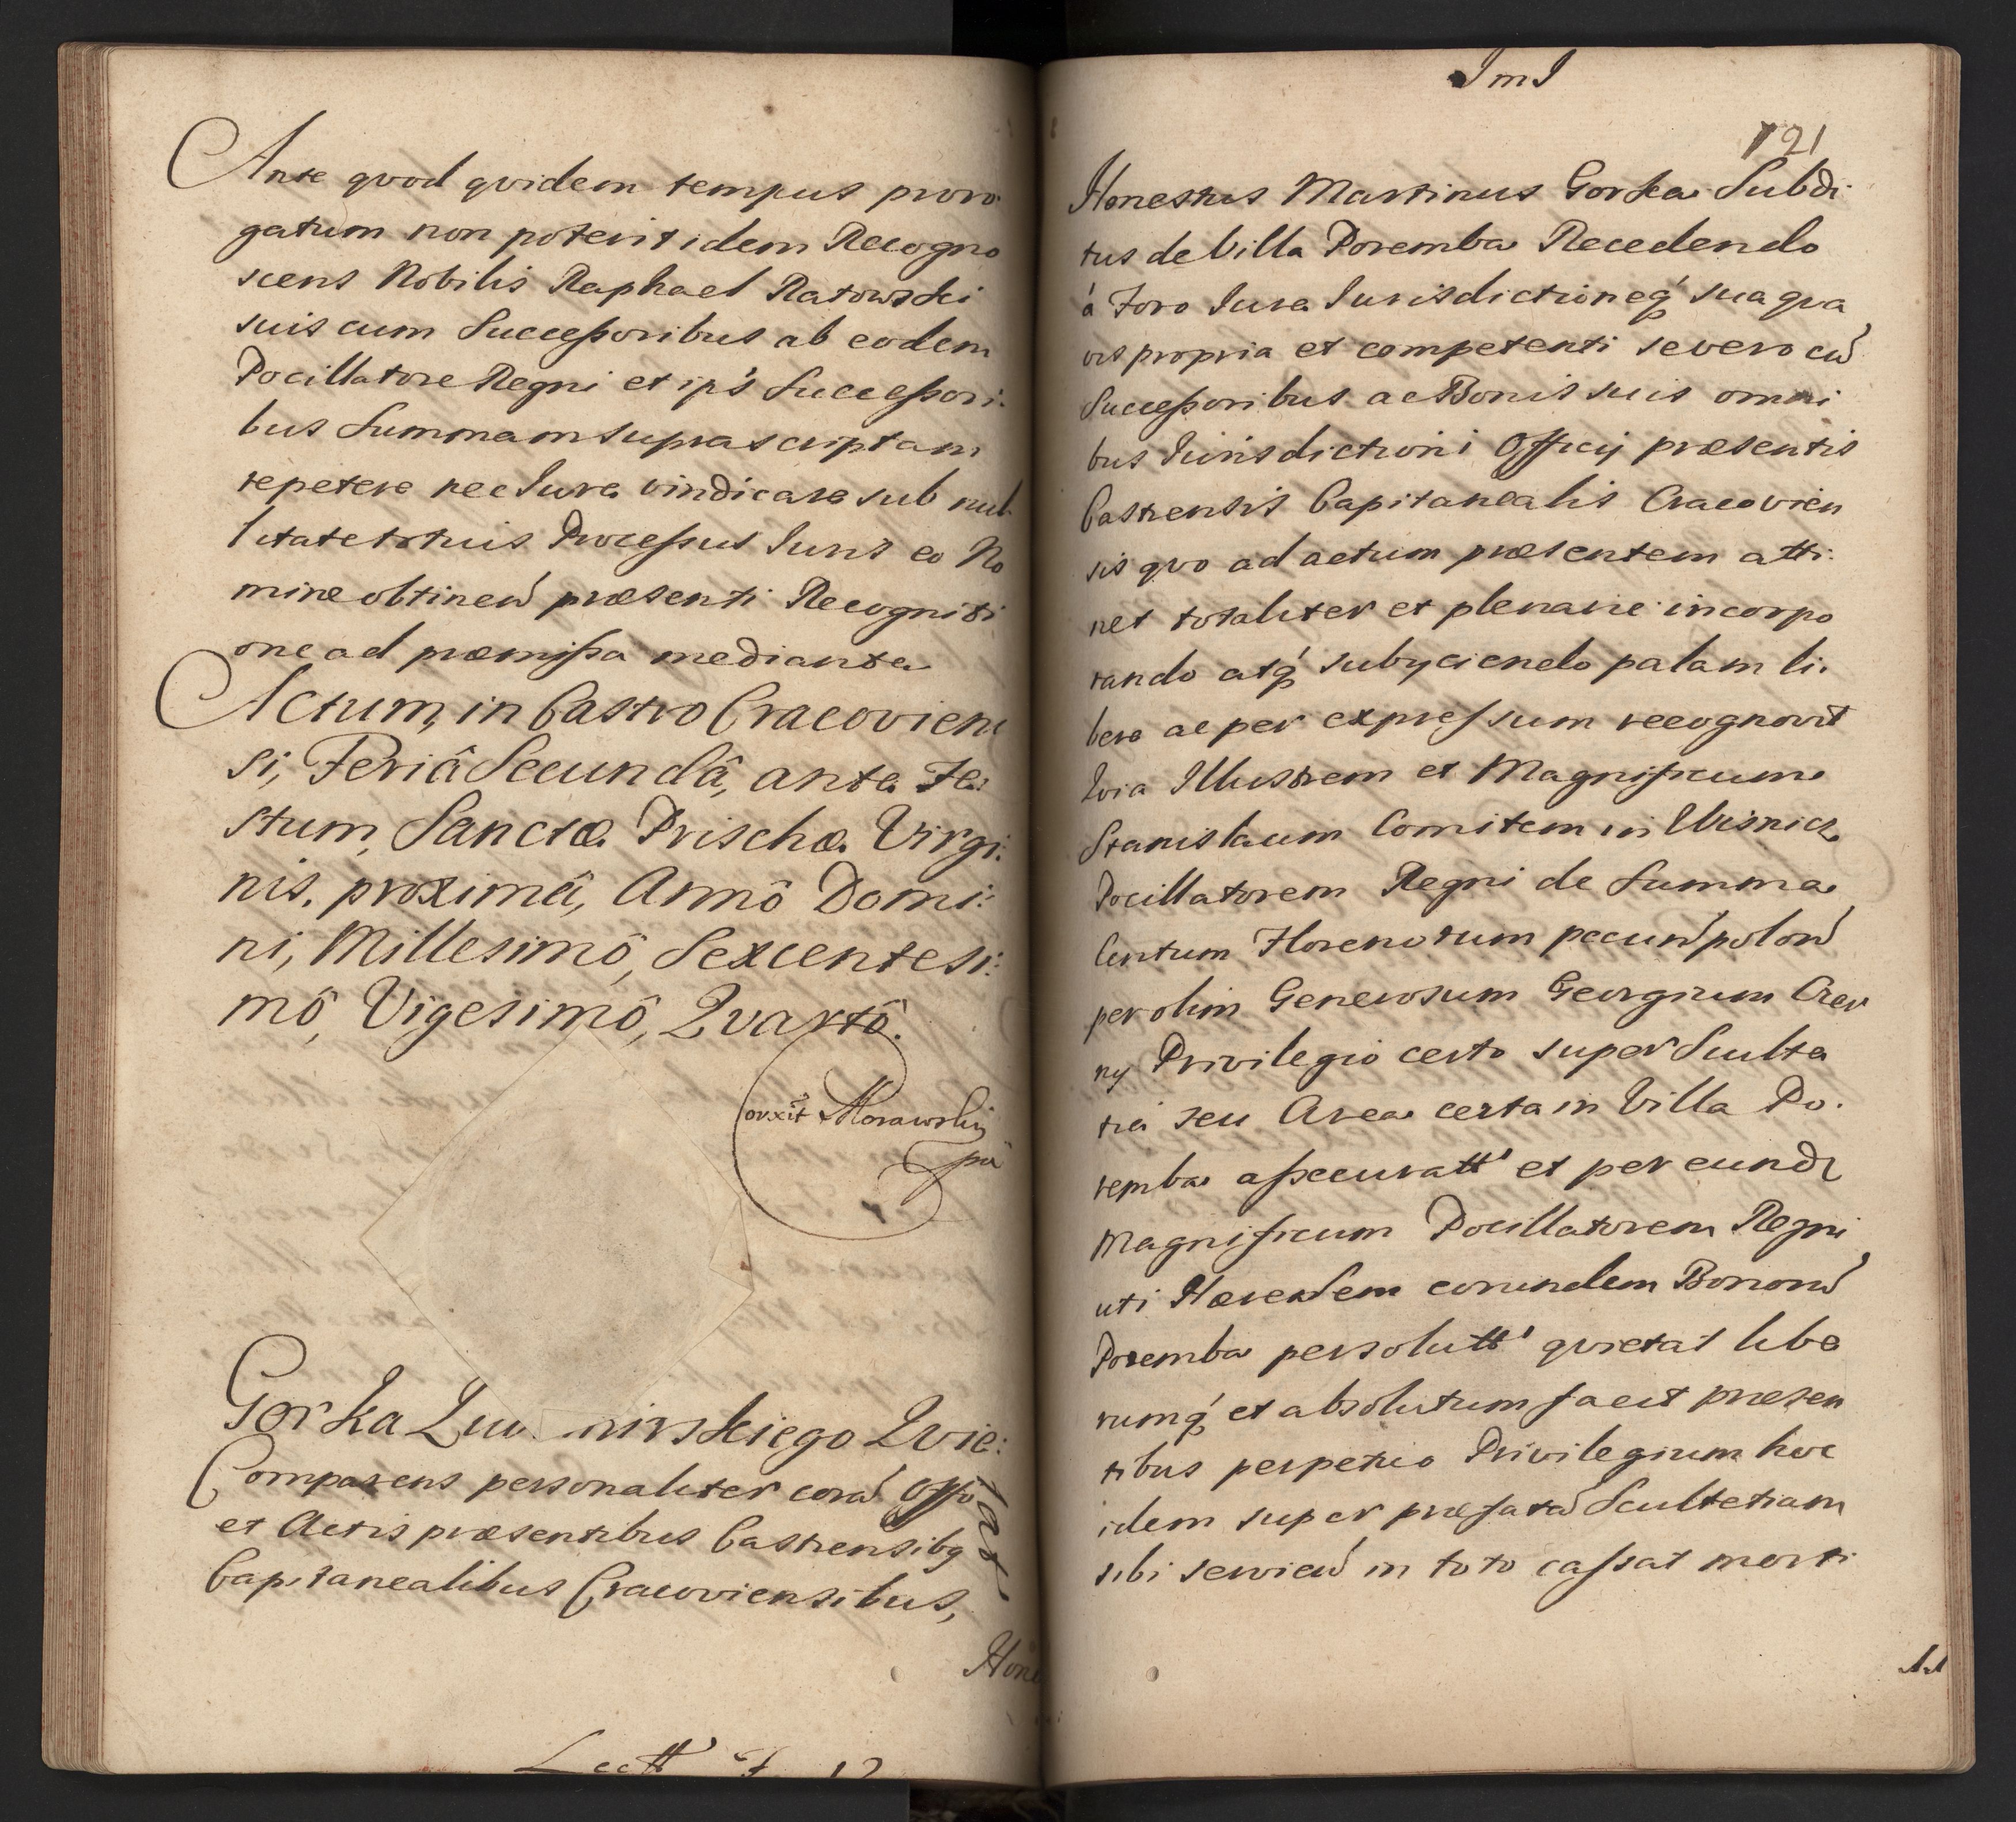 Ante qvod qvidem tempus proro
gatum non poterit idem Recogno
scens Nobilis Raphael Ratowski
suis cum Successoribus ab eodem
Pocillatore Regni et ips Successori:
bus Summam suprascriptam
repetere nec Jure vindicare sub nul
litate totius Processus Juris eo No
mine obtinen præsenti Recogniti
one ad præmissa mediante
Actum, in Castro Cracovien
si, Feriâ Secundâ, ante Fe:
stum, Sanctæ Prischæ Virgi:
nis, proximâ, Annô Domi:
ni, Millesimô, Sexcentesi:
mô, Vigesimô, Qvartô.
Corrxit Morawski
Gorka nirskiego Qvie:
tat
Comparens personaliter corā Offo
et Actis præsentibus Castrensibq
Capitanealibus Cracoviensibus,
Hone
Lectt
JmJ
121
Honestus Martinus Gorka Subdi
tus de Villa Poremba Recedendo
á Foro Jure Jurisdictioneq́ sua qva
vis propria et competenti seque cū
Successoribus ac Bonis suis omni
bus Jurisdictioni Officij præsentis
Castrensis Capitanealis Cracovien
sis qvo ad actum præsentem atti:
net totaliter et plenarie incorpo
rando atq́ subyciendo palam li.
bere ac per expressum recognovit
Qvia Illustrem et Magnificum
Stanislaum Comitem in Wisnicz
Pocillatorem Regni de Summa
Centum Florenorum pecun polon
per olim Generosum Georgium Czer
ny Privilegio certo super Sculte
tia seu Area certa in Villa Po.
remba assecuratt et per eund
Magnificum Pocillatorem Regni
uti Hæredem eorundem Bonor
Poremba persolutt qvietat libe
rumq́ et absolutum facit præsen
tibus perpetuo Privilegium hoc
idem super præfatā Scultetiam
sibi servien in toto cassat morti